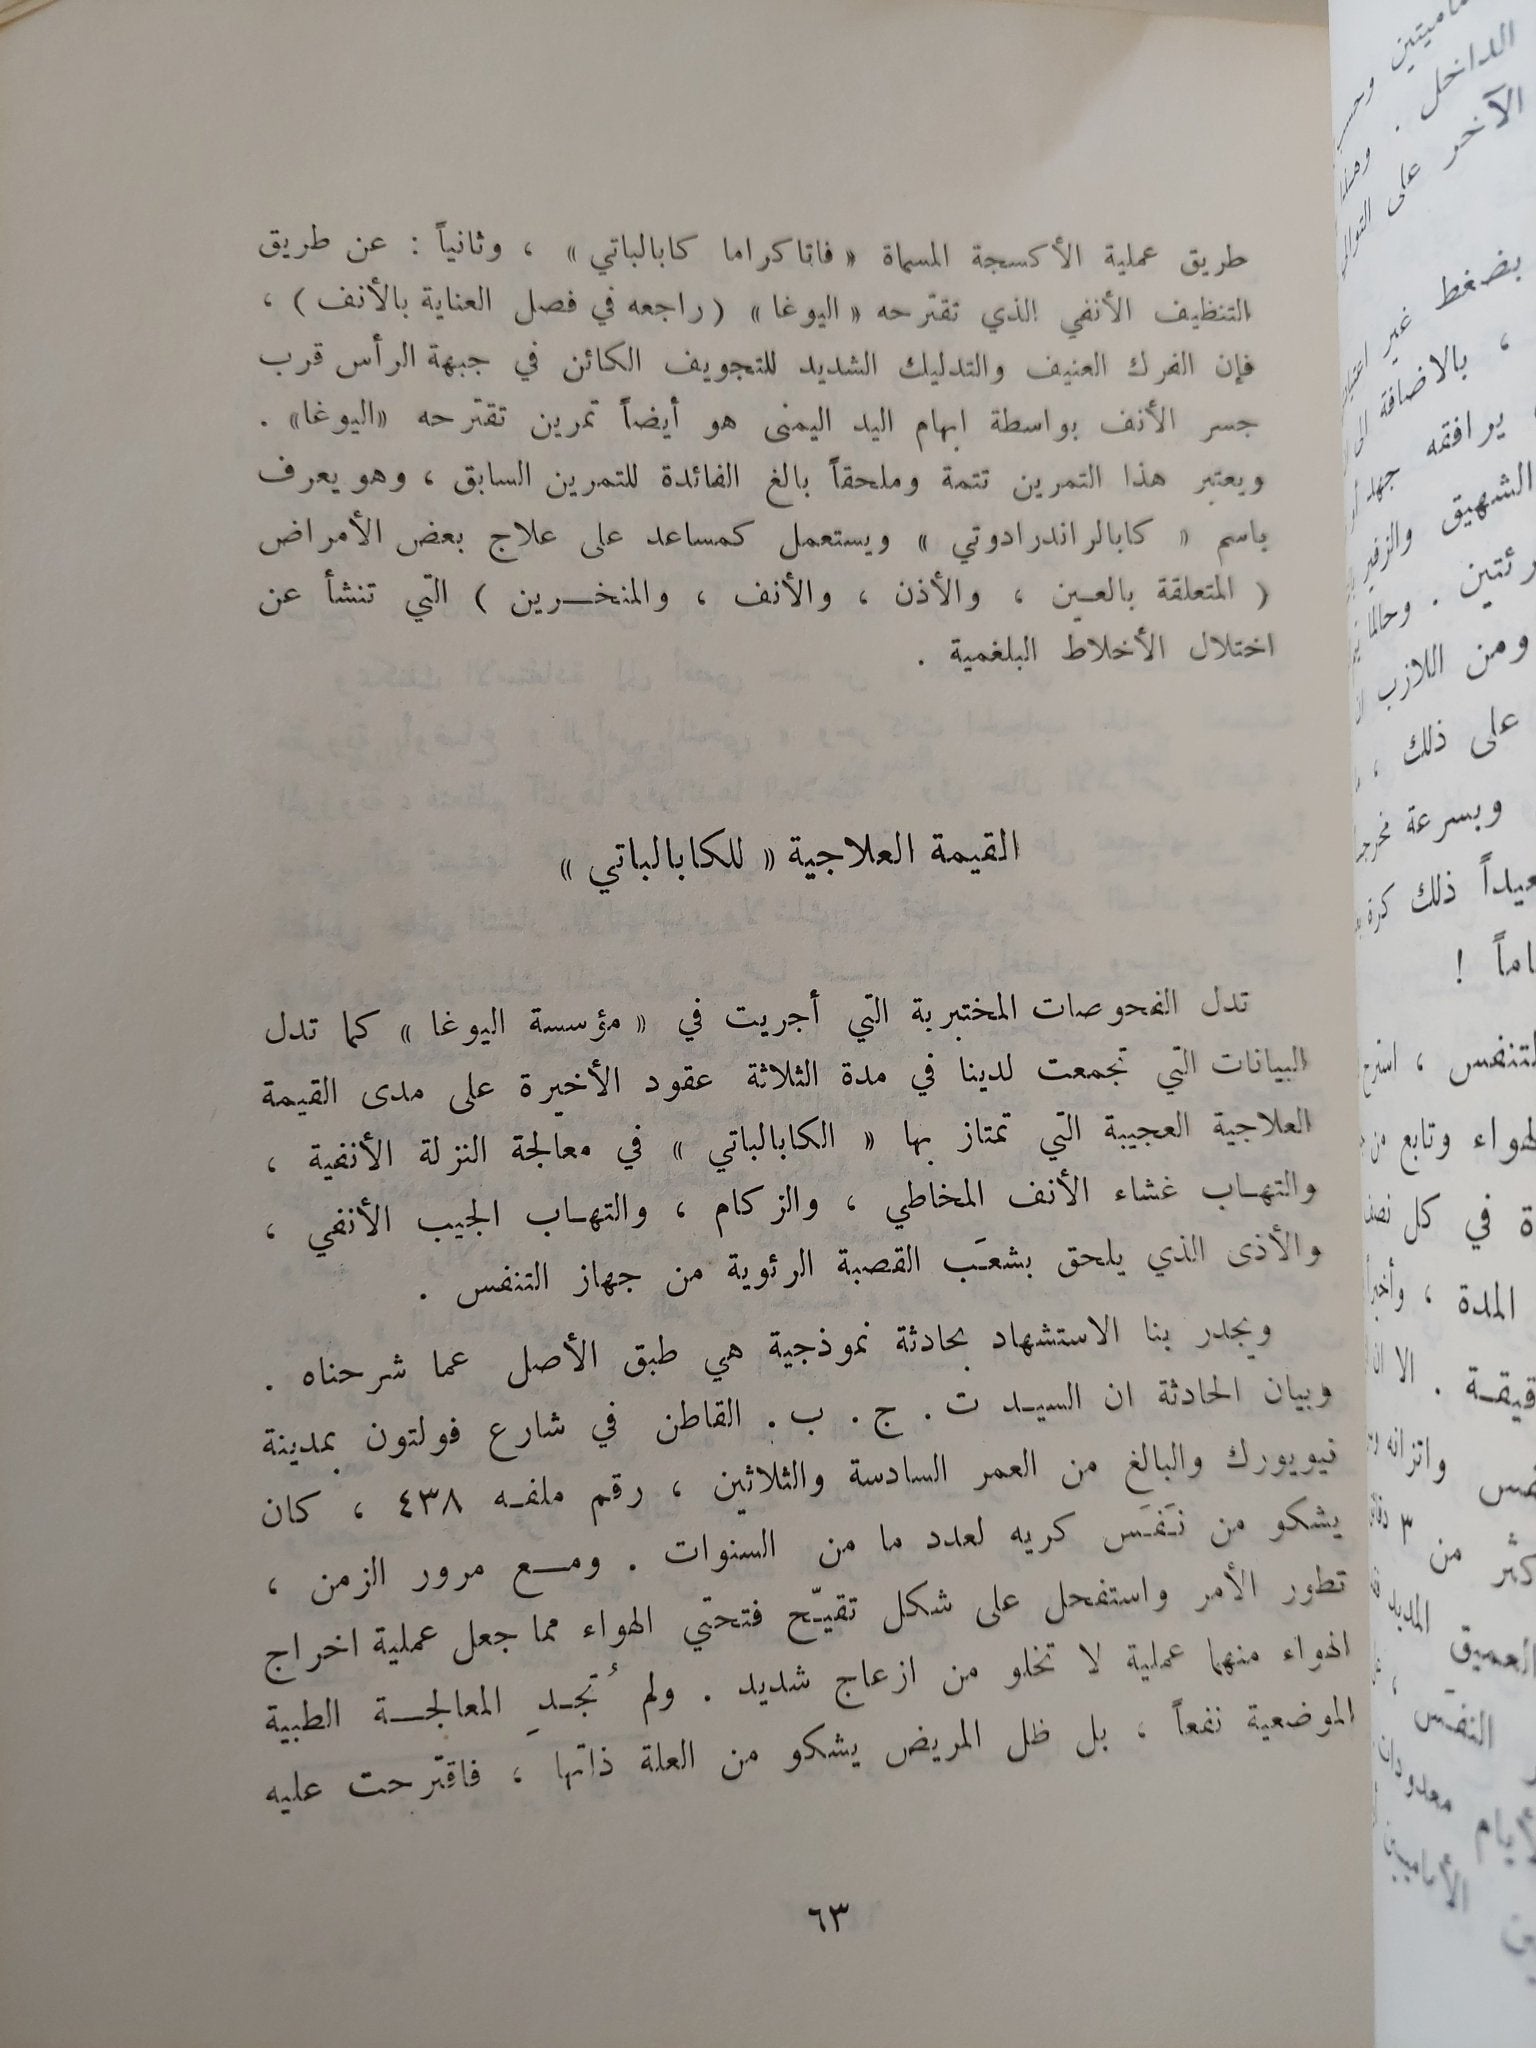 طريق عملية الأكسجة المسماة « فاتاكراما كابالباتي » ، وثانياً : عن طريق
التنظيف الأنفي الذي تقترحه « اليوغا » ( راجعه في فصل العناية بالأنف ) ،
فإن الفرك العنيف والتدليك الشديد للتجويف الكائن في جبهة الرأس قرب
جسر الأنف بواسطة ابهام اليد اليمنى هو أيضاً تمرين تقترحه «اليوغا» .
ويعتبر هذا التمرين تتمة وملحقاً بالغ الفائدة للتمرين السابق ، وهو يعرف
باسم « كابالراندرادوتي » ويستعمل كمساعد على علاج بعض الأمراض
( المتعلقة بالعين ، والأذن ، والأنف ، والمنخرين ) التي تنشأ عن
اختلال الأخلاط البلغمية .
القيمة العلاجية « للكابالباتي »
تدل الفحوصات المختبرية التي أجريت في « مؤسسة اليوغا » كما تدل
البيانات التي تجمعت لدينا في مدة الثلاثة عقود الأخيرة على مدى القيمة
العلاجية العجيبة التي تمتاز بها « الكابالباتي » في معالجة النزلة الأنفية ،
والتهاب غشاء الأنف المخاطي ، والزكام ، والتهاب الجيب الأنفي ،
والأذى الذي يلحق بشعَب القصبة الرئوية من جهاز التنفس .
ويجدر بنا الاستشهاد بحادثة نموذجية هي طبق الأصل عما شرحناه .
وبيان الحادثة ان السيد ت . ج . ب . القاطن في شارع فولتون بمدينة
نيويورك والبالغ من العمر السادسة والثلاثين ، رقم ملفه ٤٣٨ ، كان
يشكو من نَفَس كريه لعدد ما من السنوات . ومع مرور الزمن ،
تطور الأمر واستفحل على شكل تقيّح فتحتي الهواء مما جعل عملية اخراج
الهواء منهما عملية لا تخلو من ازعاج شديد . ولم تُجدِ المعالجة الطبية
الموضعية نفعاً ، بل ظل المريض يشكو من العلة ذاتها ، فاقترحت عليه
٦٣
الداخل .
الآخر على التوالي
بضغط غير
، بالاضافة الى
يرافقه جهد
الشهيق والزفير
رئتين . وحالما
ومن اللازب
على ذلك ،
وبسرعة
ذلك كرة
!
، استرح
وتابع من
في كل نصف
المدة ،
. الا ان
من ٣